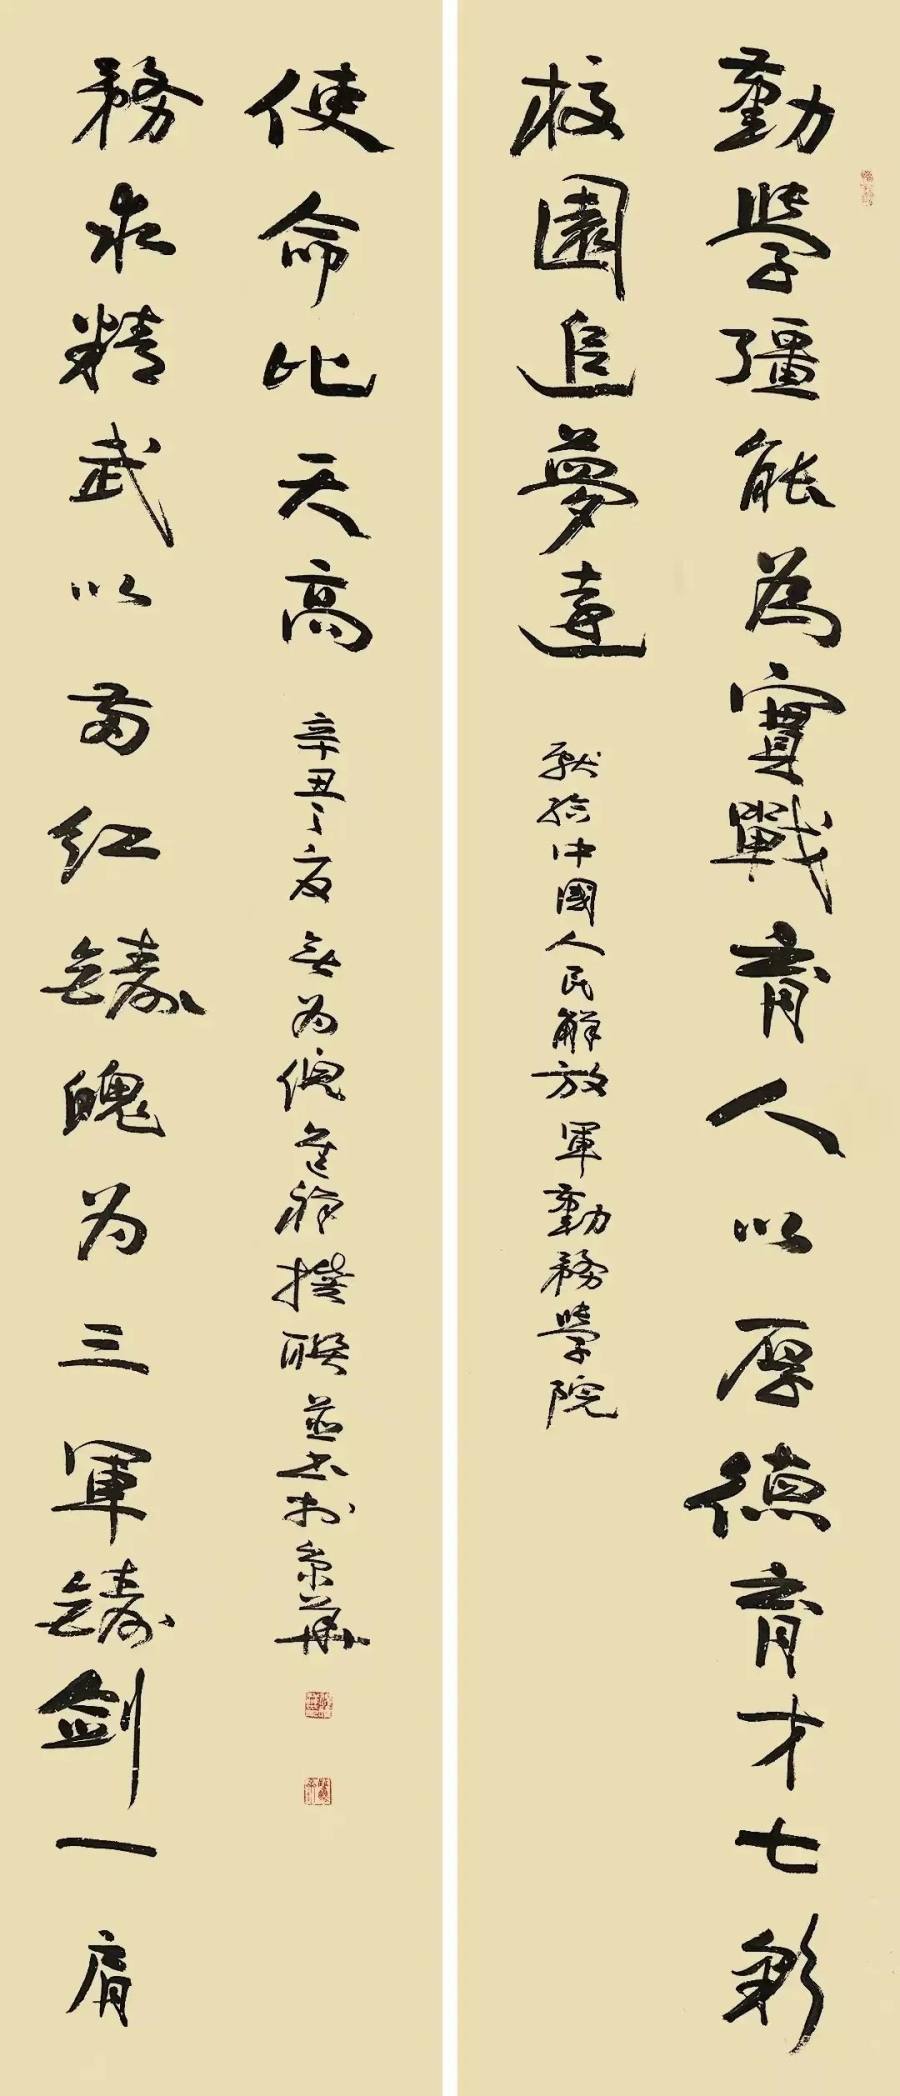 勤學彊能為實戰育人以厚德育才七彩
校園追夢遠
獻給中國人民解放軍勤務學院
務求精武以红鑄魄为三軍鑄劍一肩
使命比天高
辛丑之夏为祥撰聯並书於京華